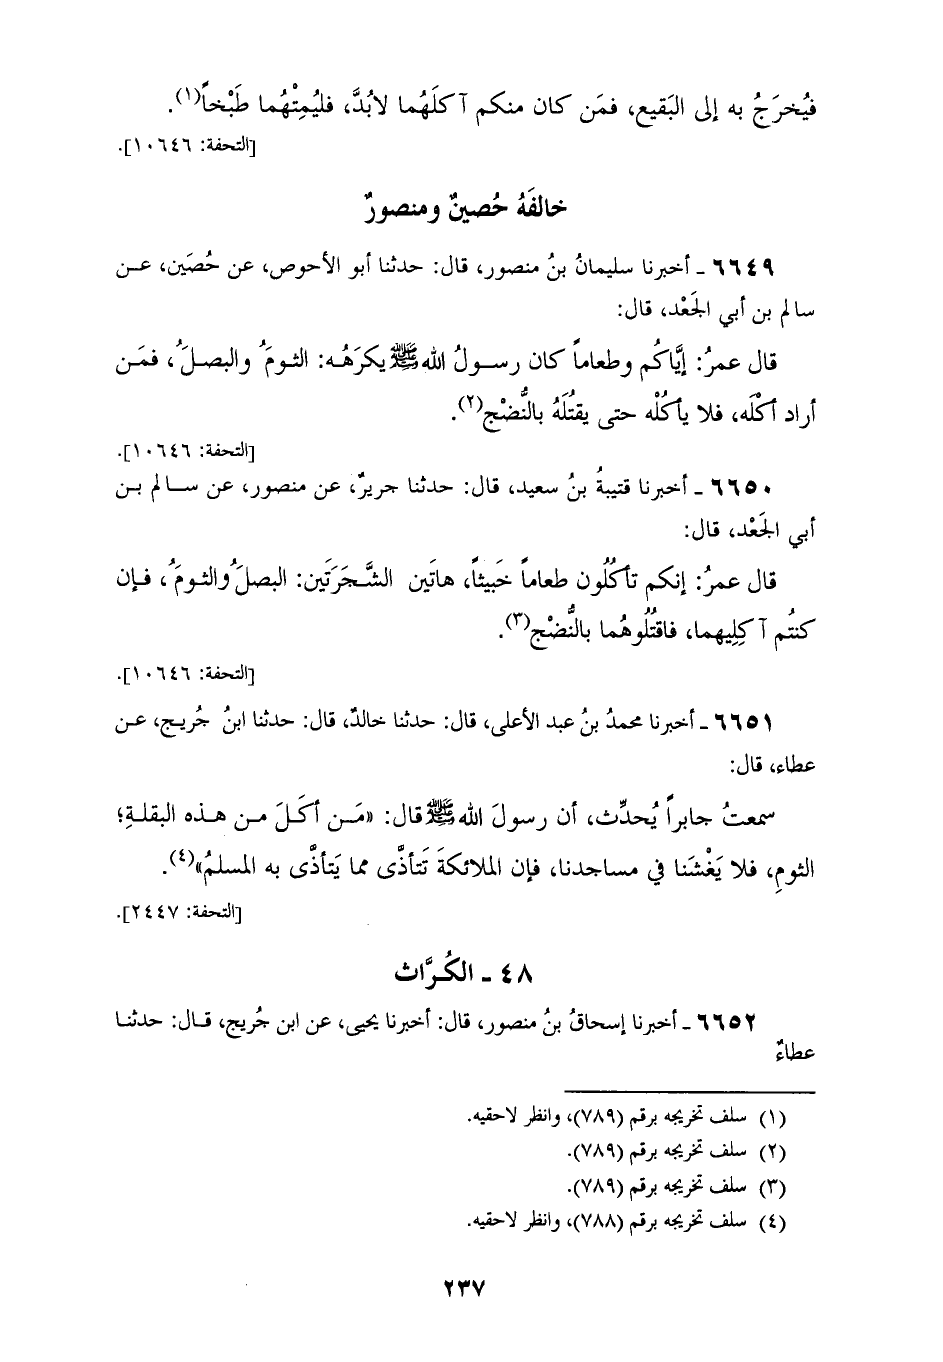 فيُخرَجُ به إلى البَقيع، فمَن كان منكم آكلَهُما لابُدَّ، فليُمِتْهُما طَبْخاً(١).
[التحفة: ١٠٦٤٦].
خالفَهُ حُصينٌ ومنصورٌ
٦٦٤٩ ـ أخبرنا سليمانُ بنُ منصور، قال: حدثنا أبو الأحوص، عن حُصَين، عـن
سالم بن أبي الجَعْد، قال:
قال عمرُ: إيَّاكُم وطعاماً كان رسـولُ الله ﷺ يكرَهُـه: الثـومَُ والبصـلَُ، فمَـن
أراد أكْلَه، فلا يأكُلْه حتى يقتُلَهُ بالنُّضْج(٢).
[التحفة: ١٠٦٤٦].
٦٦٥٠ ـ أخبرنا قتيبةُ بنُ سعيد، قال: حدثنا جريرٌ، عن منصور، عن سـالم بـن
أبي الجَعْد، قال:
قال عمرُ: إنكم تأكُلُون طعاماً خَبيثاً، هاتَين الشَّجَرَتَين: البصلَُ والثومَُ، فـإن
كنتُم آكِلِيهما، فاقتُلُوهُما بالنُّضْج(٣).
[التحفة: ١٠٦٤٦].
٦٦٥١ ـ أخبرنا محمدُ بنُ عبد الأعلى، قال: حدثنا خالدٌ، قال: حدثنا ابنُ جُريـج، عـن
عطاء، قال:
سمعتُ جابراً يُحدِّث، أن رسولَ الله ﷺ قال: «مَـن أكَـلَ مـن هـذه البقلـةِ؛
الثومِ، فلا يَغْشَنا في مساجدنا، فإن الملائكةَ تَتأذَّى مما يَتأذَّى به المسلمُ»(٤).
[التحفة: ٢٤٤٧].
٤٨ ـ الكُرَّاث
٦٦٥٢ ـ أخبرنا إسحاقُ بنُ منصور، قال: أخبرنا يحيى، عن ابن جُريج، قـال: حدثنـا
عطاءٌ
(١) سلف تخريجه برقم (٧٨٩)، وانظر لاحقيه.
(٢) سلف تخريجه برقم (٧٨٩).
(٣) سلف تخريجه برقم (٧٨٩).
(٤) سلف تخريجه برقم (٧٨٨)، وانظر لاحقيه.
٢٣٧